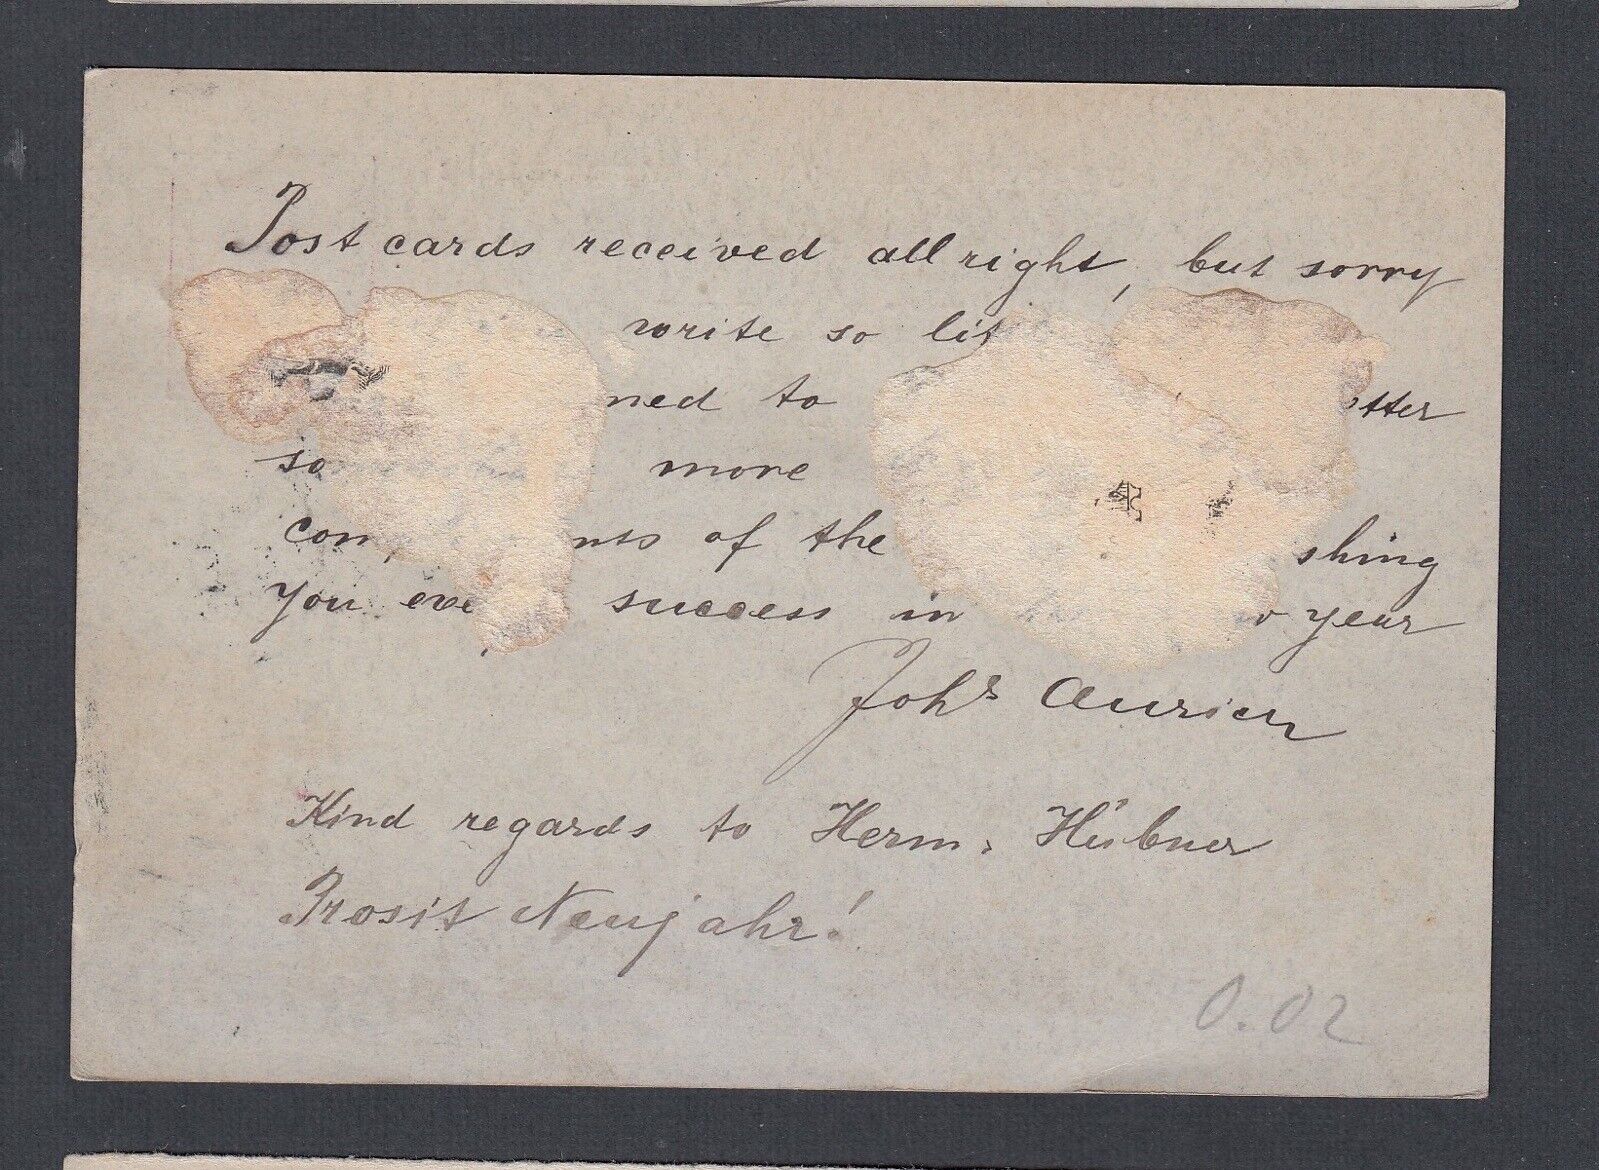 Post cards received all right, but sorry
write so lit
ned to etter
so more
com nts of the shing
You eve success in year
Johs
Kind regards to Herm. Hübner
Prosit Neujahr!
0.02